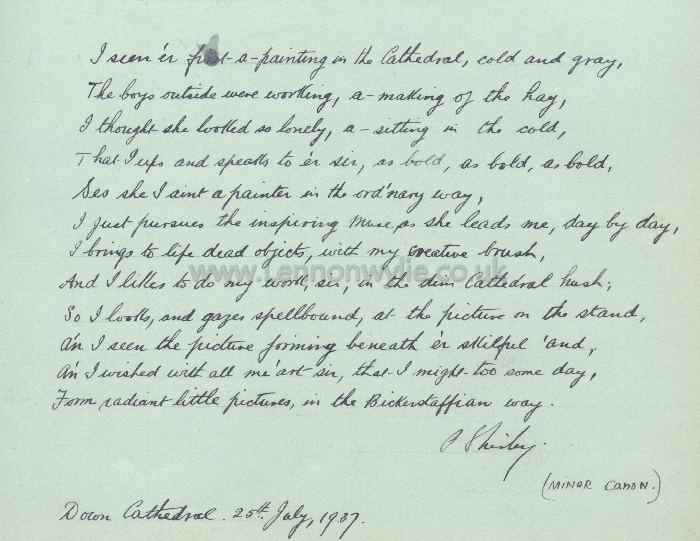 I seen 'er first a-painting in the Cathedral, cold and gray,
The boys outside were working, a-making of the hay,
I thought she looked so lonely, a-sitting in the cold,
That I ups and speaks to 'er sir, as bold, as bold, as bold,
Ses she I aint a painter in the ord'nary way,
I just pursues the inspiring Muse, as she leads me, day by day,
I brings to life dead objects, with my creative brush,
www.Lennonwylie.co.uk
And I likes to do my work, sir, in the dim Cathedral hush;
So I looks, and gazes spellbound, at the picture on the stand,
An' I seen the picture forming beneath 'er skilful 'and,
An' I wished with all me 'art sir, that I might too some day,
Form radiant little pictures, in the Bickerstaffian way.
P Shirley.
(MINOR CANON.)
Down Cathedral. 25th July, 1937.